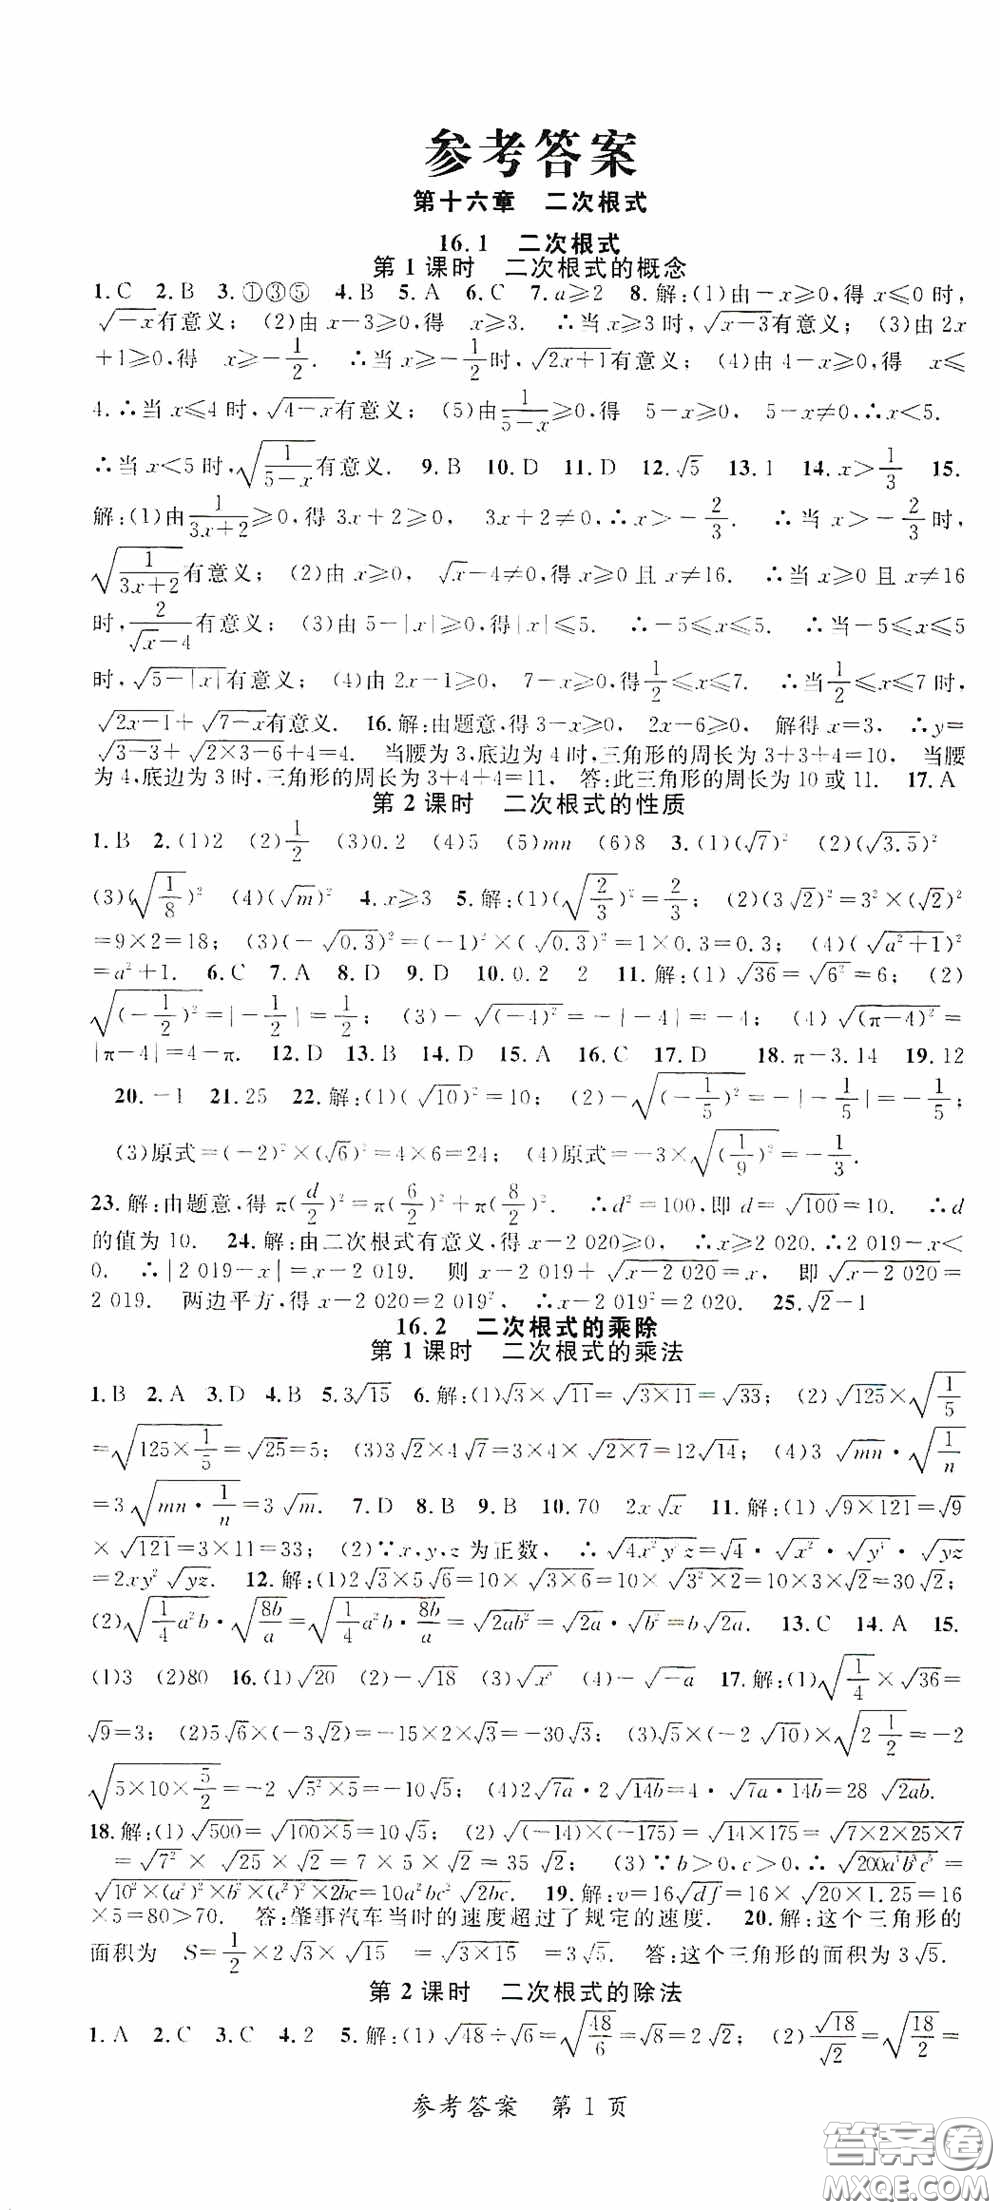 参考答案
第十六章 二次根式
16.1 二次根式
第1课时 二次根式的概念
1.C 2.B 3.①③⑤ 4.B 5.A 6.C 7.a≥2 8.解:(1)由-x≥0,得 x≤0时,
√(-x)有意义; (2)由 x-3≥0,得 x≥3. ∴当 x≥3时,√(x-3)有意义; (3)由 2x
+1≥0,得 x≥-1/2. ∴当 x≥-1/2时,√(2x+1)有意义; (4)由 4-x≥0,得 x≤
4.∴当 x≤4时,√(4-x)有意义; (5)由1/(5-x)≥0,得 5-x≥0, 5-x≠0,∴x<5.
∴当 x<5时,√(1/(5-x))有意义. 9.B 10.D 11.D 12.√5 13.1 14.x>1/3 15.
解:(1)由1/(3x+2)≥0,得 3x+2≥0, 3x+2≠0,∴x>-2/3. ∴当 x>-2/3时,
√(1/(3x+2))有意义; (2)由 x≥0, √x-4≠0,得 x≥0 且 x≠16. ∴当 x≥0 且 x≠16
时,2/(√x-4)有意义; (3)由 5-|x|≥0,得|x|≤5. ∴-5≤x≤5. ∴当-5≤x≤5
时,√(5-|x|)有意义; (4)由 2x-1≥0, 7-x≥0,得1/2≤x≤7. ∴当1/2≤x≤7时,
√(2x-1)+√(7-x)有意义. 16.解:由题意,得 3-x≥0, 2x-6≥0, 解得 x=3. ∴y=
√(3-3)+√(2×3-6)+4=4. 当腰为 3,底边为 4 时,三角形的周长为 3+3+4=10, 当腰
为 4,底边为 3 时,三角形的周长为 3+4+4=11, 答:此三角形的周长为 10 或 11. 17.A
第2课时 二次根式的性质
1.B 2.(1)2 (2)1/2 (3)0.2 (4)5 (5)mn (6)8 3.(1)(√7)² (2)(√3.5)²
(3)(√(1/8))² (4)(√m)² 4.x≥3 5.解:(1)(√(2/3))²=2/3; (2)(3√2)²=3²×(√2)²
=9×2=18; (3)(-√0.3)²=(-1)²×(√0.3)²=1×0.3=0.3; (4)(√(a²+1))²
=a²+1. 6.C 7.A 8.D 9.D 10.0.2 2 11.解:(1)√36=√6²=6; (2)
√((-1/2)²)=|-1/2|=1/2; (3)-√((-4)²)=-|-4|=-4; (4)√((π-4)²)=
|π-4|=4-π. 12.D 13.B 14.D 15.A 16.C 17.D 18.π-3.14 19.12
20.-1 21.25 22.解:(1)(√10)²=10; (2)-√((-1/5)²)=-|-1/5|=-1/5;
(3)原式=(-2)²×(√6)²=4×6=24; (4)原式=-3×√((1/9)²)=-1/3.
23.解:由题意,得 π(d/2)²=π(6/2)²+π(8/2)². ∴d²=100,即 d=√100=10. ∴d
的值为 10. 24.解:由二次根式有意义,得 x-2 020≥0, ∴x≥2 020.∴2 019-x<
0. ∴|2 019-x|=x-2 019. 则 x-2 019+√(x-2 020)=x, 即√(x-2 020)=
2 019. 两边平方,得 x-2 020=2 019², ∴x-2 019²=2 020. 25.√2-1
16.2 二次根式的乘除
第1课时 二次根式的乘法
1.B 2.A 3.D 4.B 5.3√15 6.解:(1)√3×√11=√(3×11)=√33; (2)√125×√(1/5)
=√(125×1/5)=√25=5; (3)3√2×4√7=3×4×√(2×7)=12√14; (4)3√mn·√(1/n)
=3√(mn·1/n)=3√m. 7.D 8.B 9.B 10.70 2x√x 11.解:(1)√(9×121)=√9
×√121=3×11=33; (2)∵x,y,z 为正数, ∴√(4x²y⁵z)=√4·√x²·√y⁴·√yz
=2xy²√yz. 12.解:(1)2√3×5√6=10×√(3×6)=10×√(3²×2)=10×3×√2=30√2;
(2)√(1/4a²b)·√(8b/a)=√(1/4a²b·8b/a)=√(2ab²)=√2a·√b²=b√2a. 13.C 14.A 15.
(1)3 (2)80 16.(1)√20 (2)-√18 (3)√x³ (4)-√(-a) 17.解:(1)√(1/4)×√36=
√9=3; (2)5√6×(-3√2)=-15×2×√3=-30√3; (3)√5×(-2√10)×√(2 1/2)=-2
√(5×10×5/2)=-2√(5²×5)=-10√5; (4)2√7a·2√14b=4·√(7a·14b)=28√2ab.
18.解:(1)√500=√(100×5)=10√5; (2)√((-14)×(-175))=√(14×175)=√(7×2×25×7)
=√7²×√25×√2=7×5×√2=35√2; (3)∵b>0,c>0,∴√(200a⁴b³c⁵)=
√(10²×(a²)²×b²×(c²)²×2bc)=10a²bc²√2bc. 19.解:v=16√df=16×√(20×1.25)=16
×5=80>70. 答:肇事汽车当时的速度超过了规定的速度. 20.解:这个三角形的
面积为 S=1/2×2√3×√15=√(3×15)=3√5. 答:这个三角形的面积为 3√5.
第2课时 二次根式的除法
1.A 2.C 3.C 4.2 5.解:(1)√48÷√6=√(48/6)=√8=2√2; (2)√18/√2=√(18/2)=
参考答案 第1页
答案圈
MXQE.COM